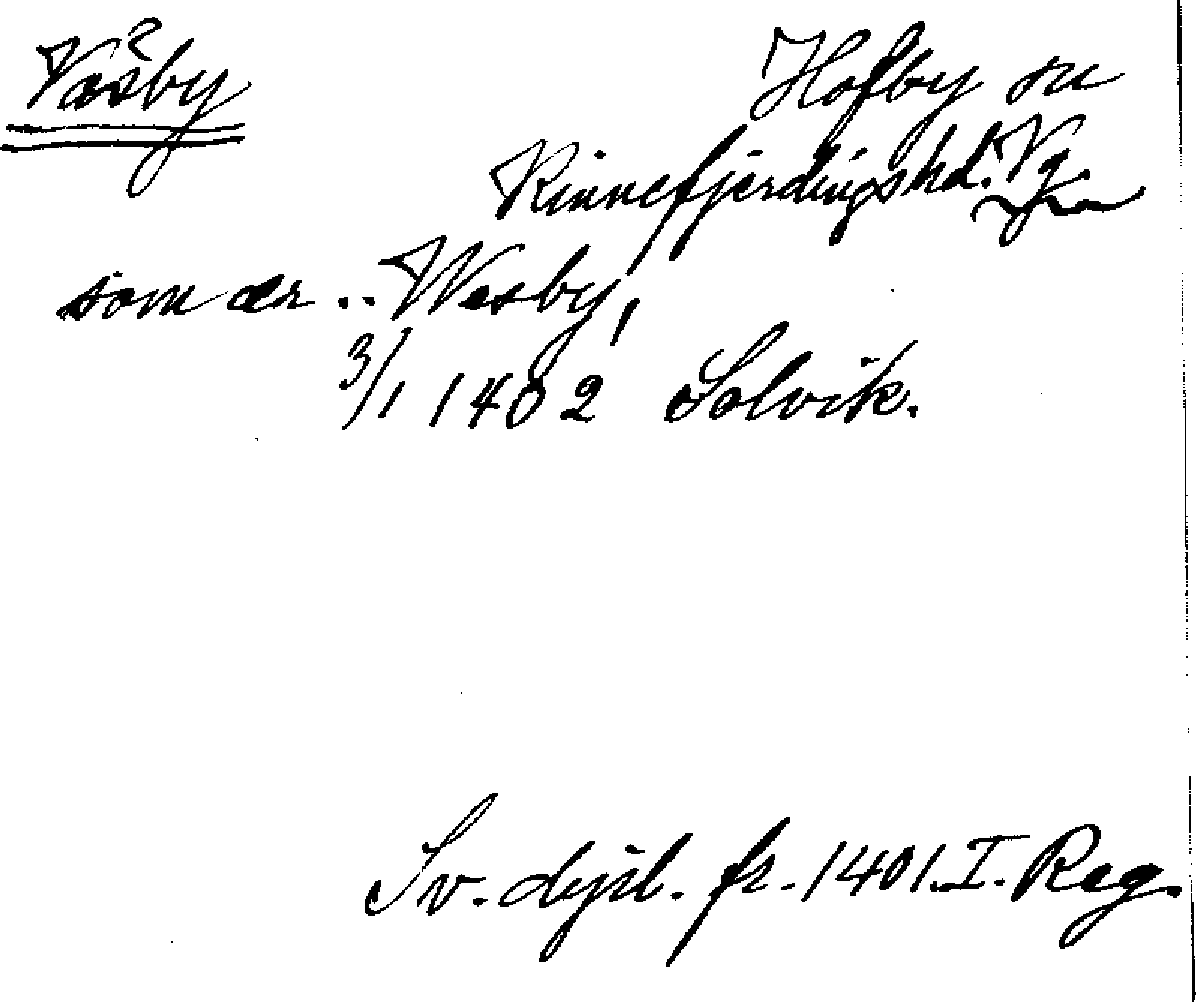 Väsby ?
Hofby sn
Kinnefjerdingshd. Vg.
som ær .. Wesby,
3/1 1402 Solvik.
Sv. dipl. fr. 1401. I. Reg.